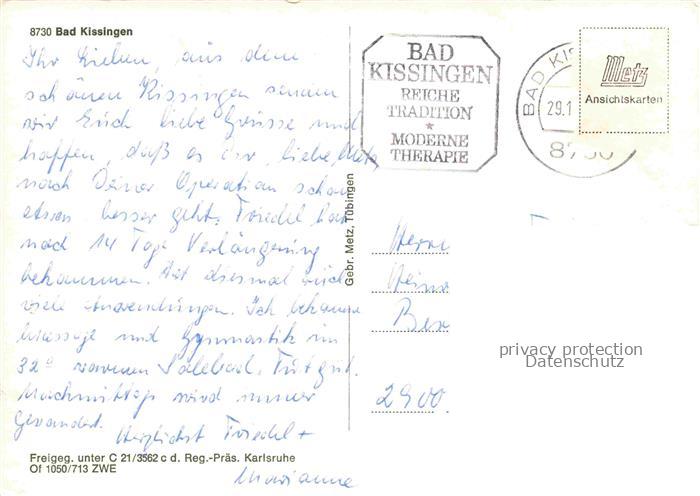 8730 Bad Kissingen
Ihr Lieben, aus dem
schönen Kissingen senden
wir Euch liebe Grüsse und
hoffen, daß es Dir, liebe
nach Deiner Operation schon
etwas besser geht. Friedel hat
noch 14 Tage Verlängerung
bekommen. Hat diesmal auch
viele Anwendungen. Ich bekomme
Massage und Gymnastik im
32° warmen Solebad. Tut gut.
Nachmittags wird immer
gewandert.
Herzlichst Friedel +
Marianne
Freigeg. unter C 21/3562 c d. Reg.-Präs. Karlsruhe
Of 1050/713 ZWE
Gebr. Metz, Tübingen
BAD
KISSINGEN
REICHE
TRADITION
*
MODERNE
THERAPIE
BAD KIS
29.1
8730
Metz
Ansichtskarten
Herrn
Heinz
2900
privacy protection
Datenschutz